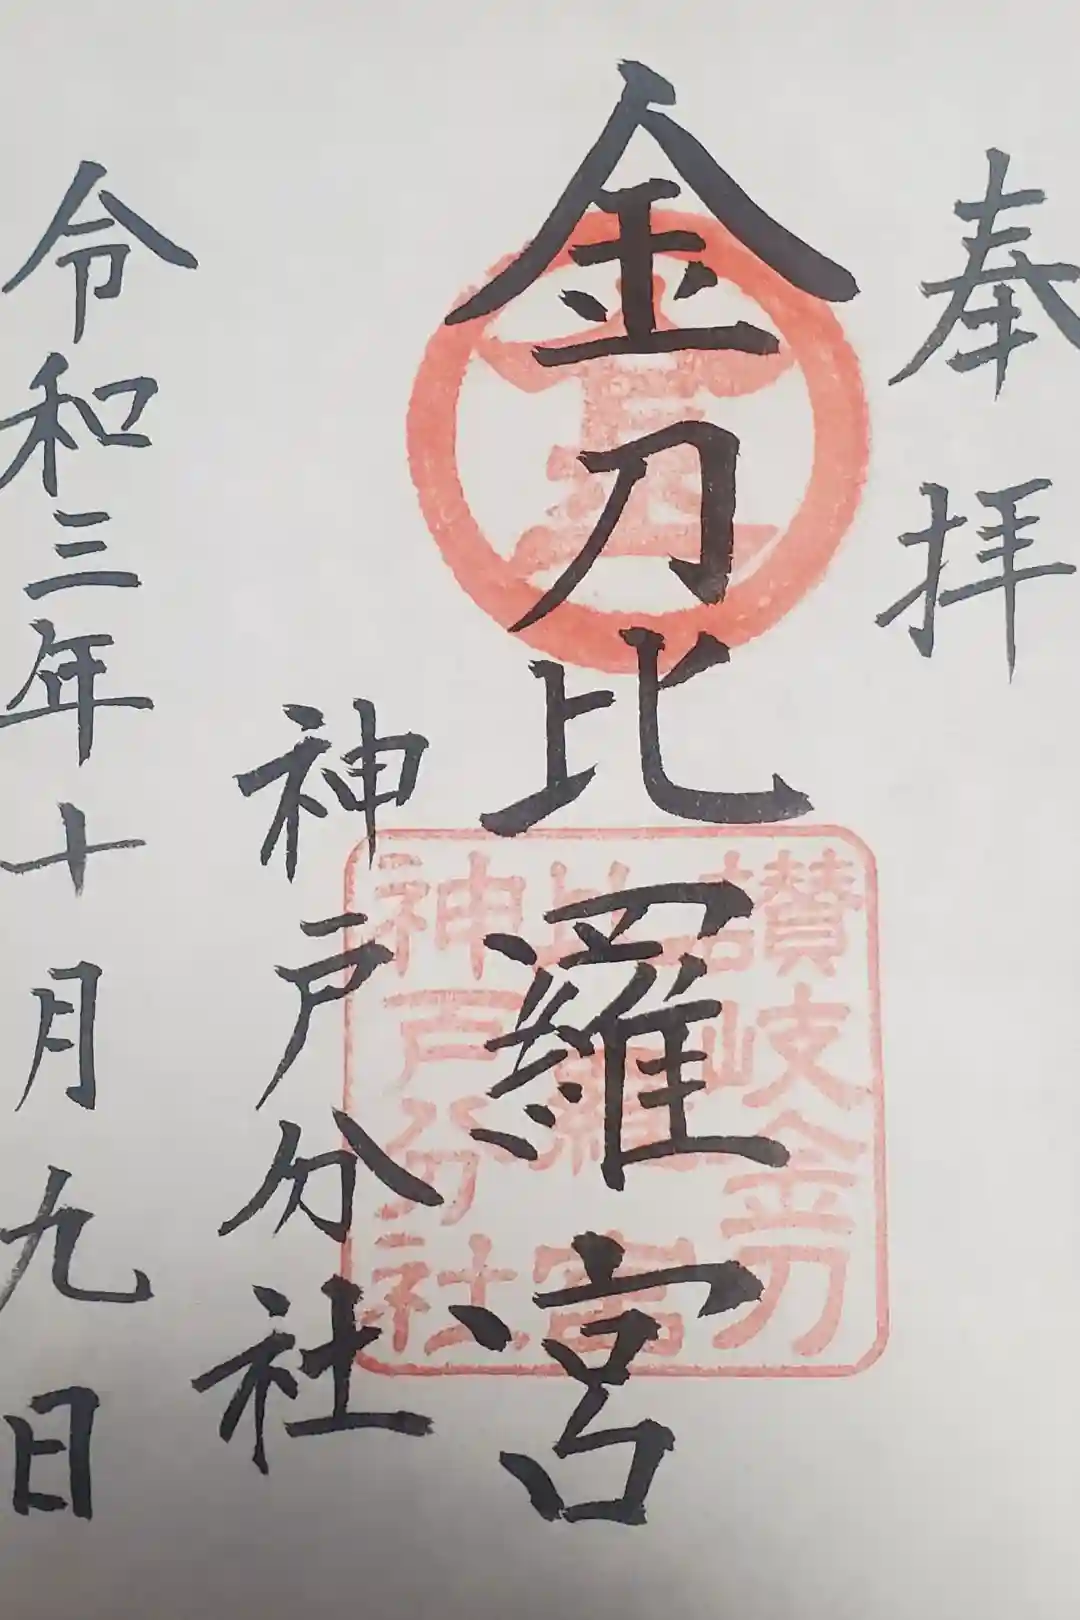 奉拝
金刀比羅宮
神戸分社
令和三年十月九日
讃岐金刀
比羅宮
神戸分社